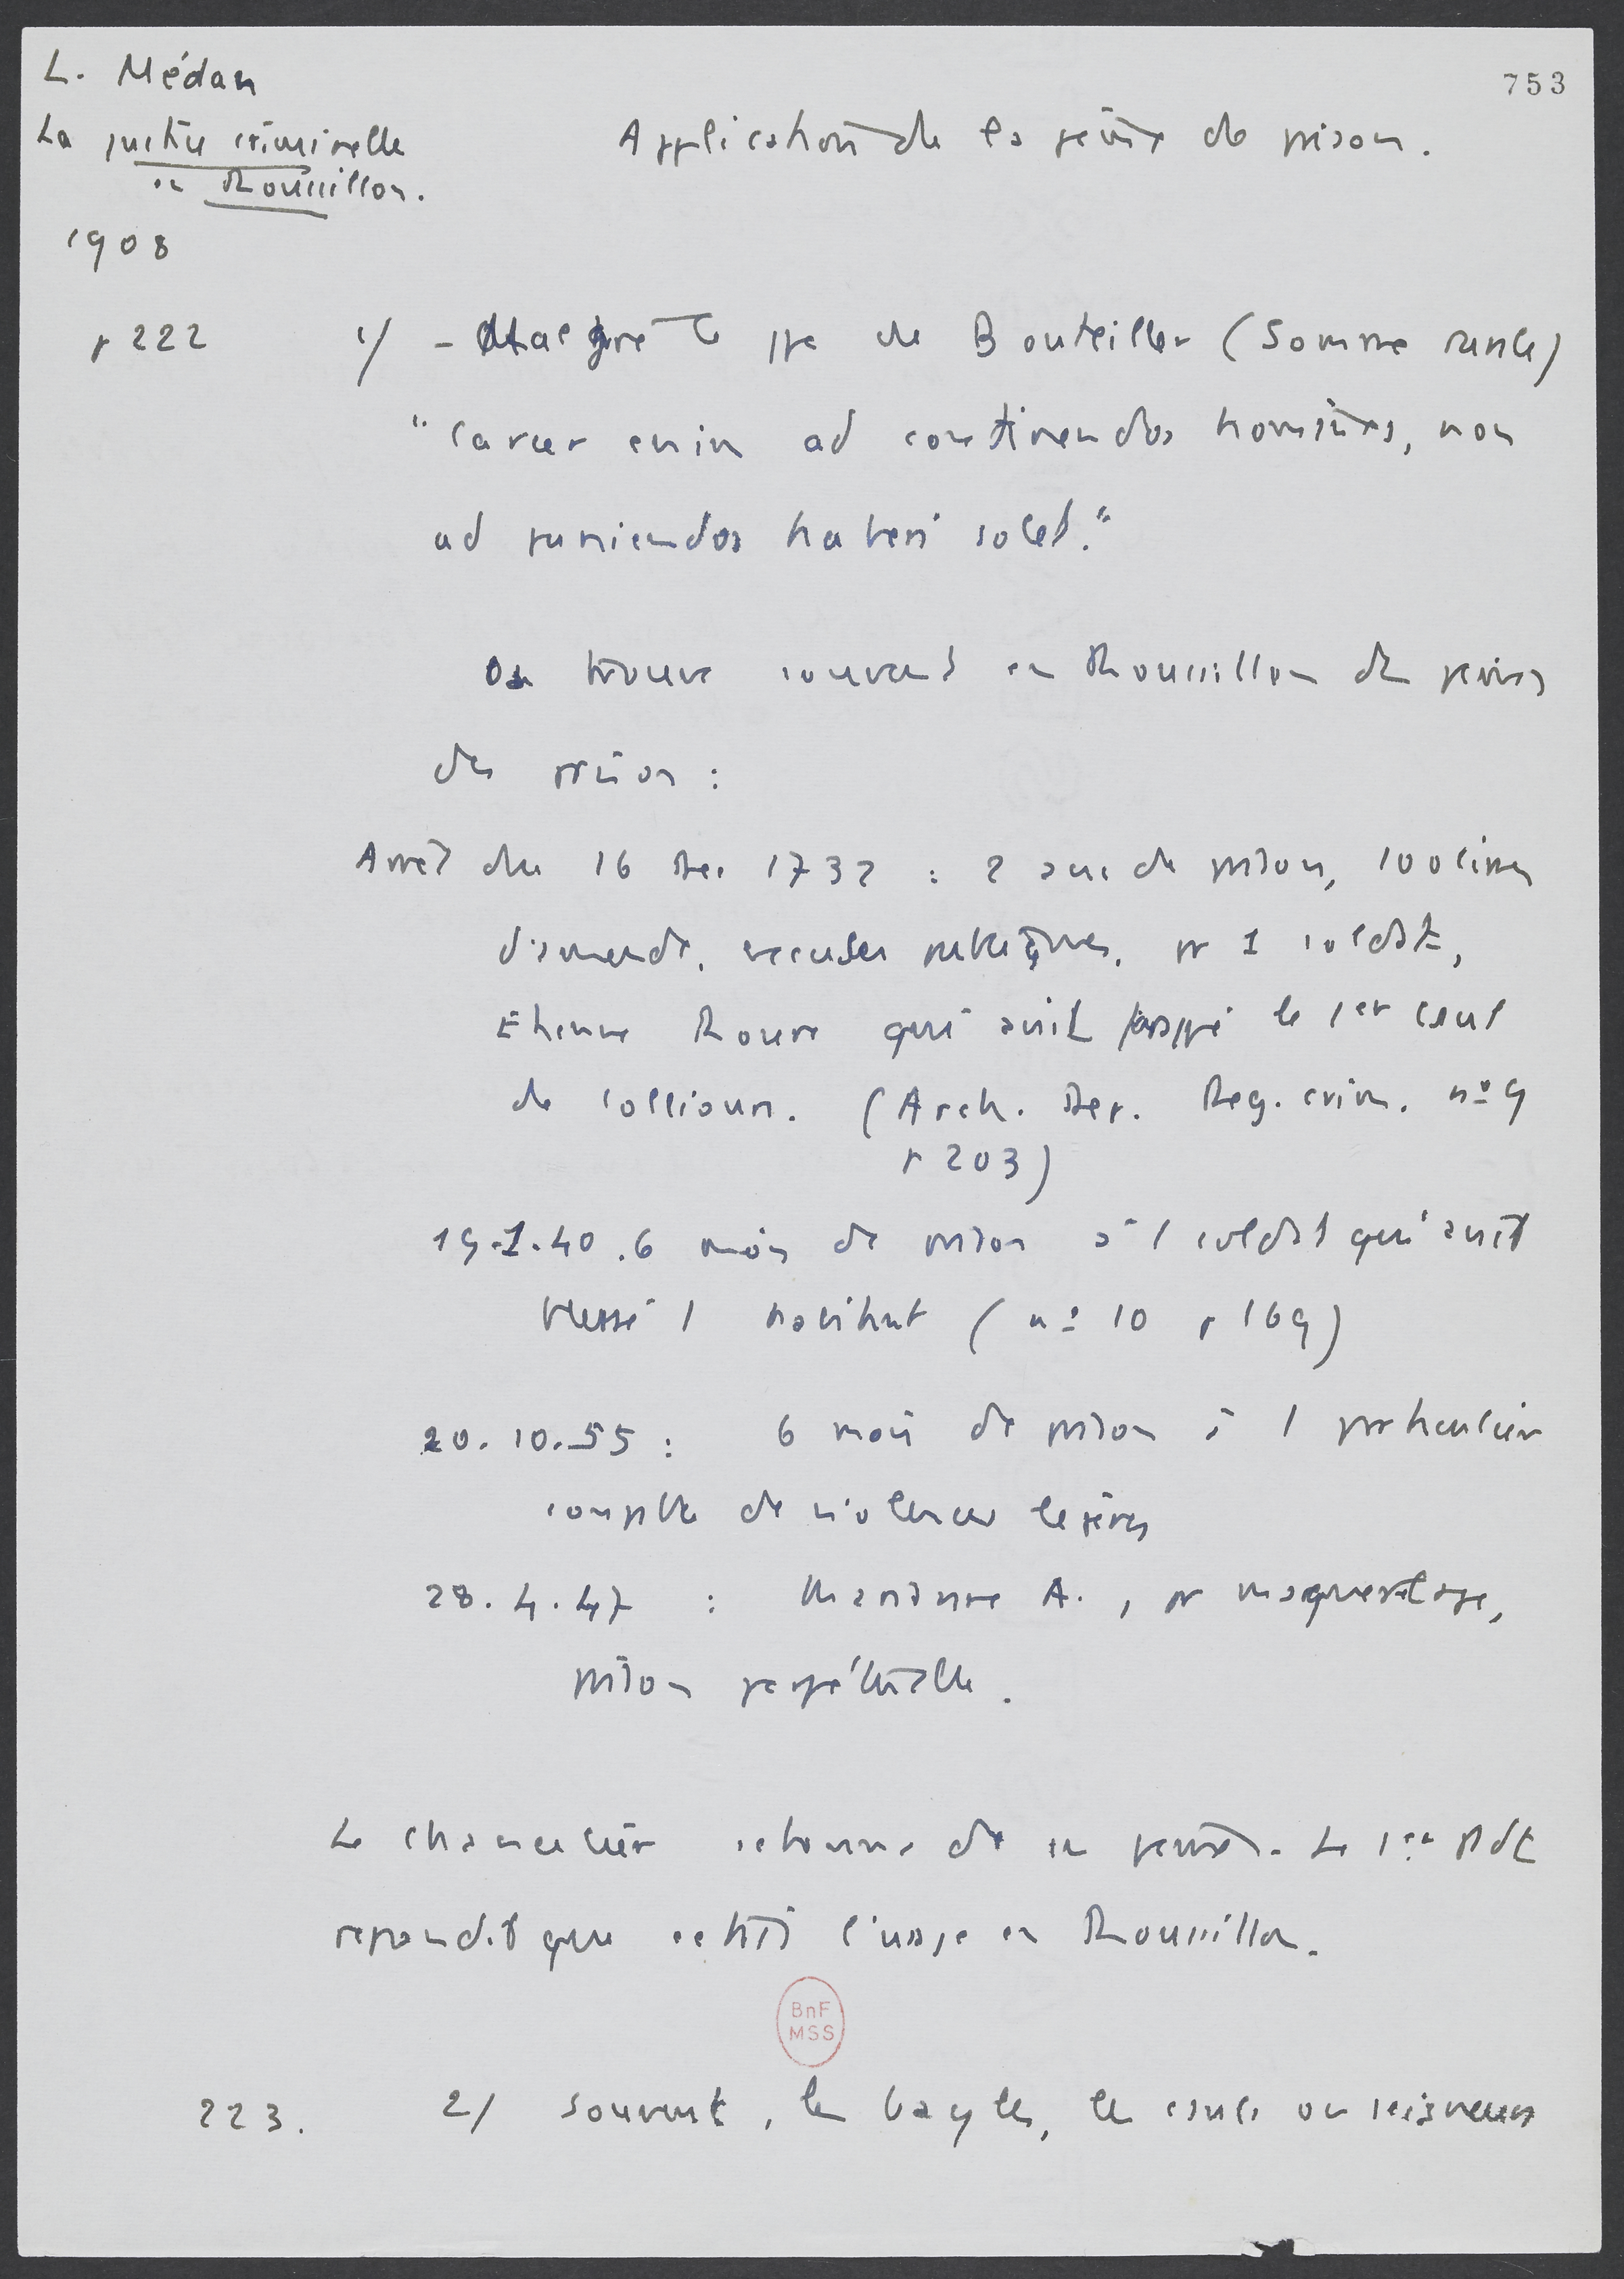 L. Médan
753
La justice criminelle
en Roussillon.
Application de la peine de prison.
1908
p 222
1/ - Malgré le ppe de Bouteiller (Somme rurale)
"Carcer enim ad continendos homines, non
ad puniendos haberi solet."
On trouve souvent en Roussillon des peines
de prison :
Arrêt du 16 Dec 1732 : 2 ans de prison, 100 livres
d'amende, excuses publiques, pr 1 soldat,
Etienne Roure qui avait frappé le 1er csul
de Collioure. (Arch. Dep. Reg. crim. nº 9
p 203)
19.1.40. 6 mois de prison à 1 soldat qui avait
blessé 1 habitant (nº 10 p 169)
20.10.55 : 6 mois de prison à 1 particulier
coupable de violences légères
28.4.47 : Marianne A., pr maquerelage,
prison perpétuelle.
Le chancelier s'etonna de ces peines. Le 1er Pdt
repondit que c'etait l'usage en Roussillon.
BnF
MSS
223.
2/ Souvent, les bayles, les csuls ou seigneurs